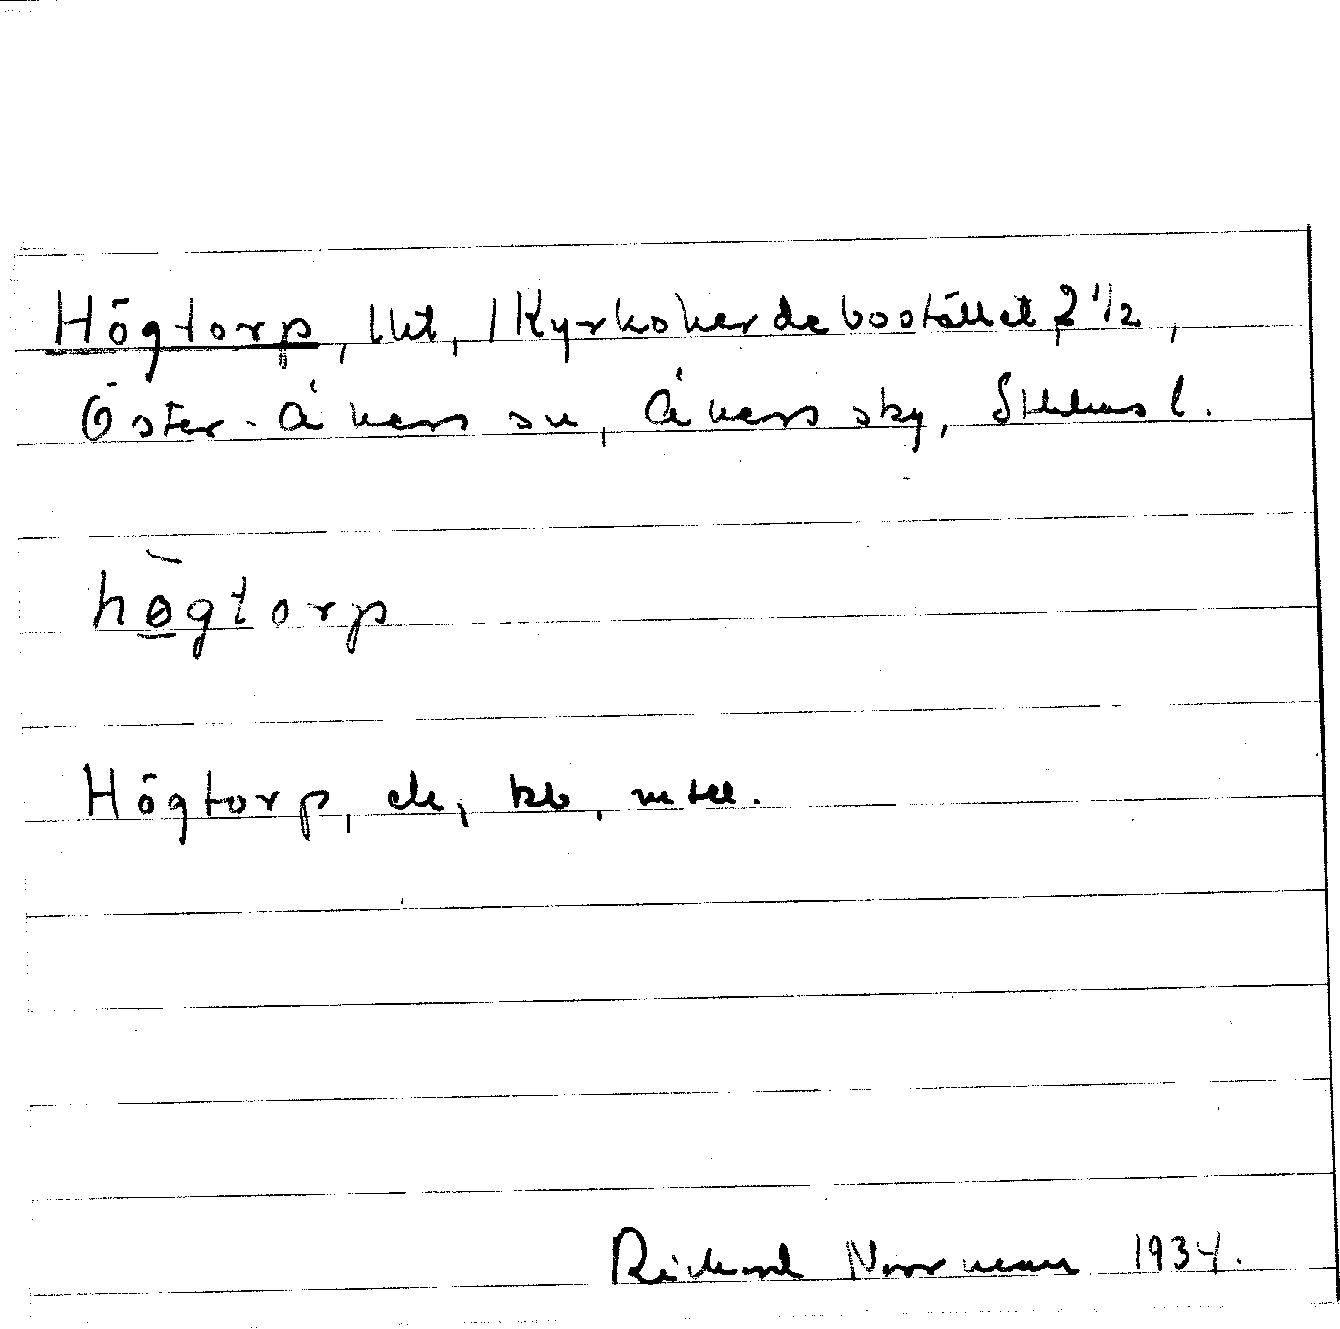 Högtorp, lht, 1 Kyrkoherdebostället 2 1/2,
Öster-Åkers sn, Åkers sky, Sthlms l.
høgtorp
Högtorp, ek, kb, mtll.
Rickard Norrman 1934.